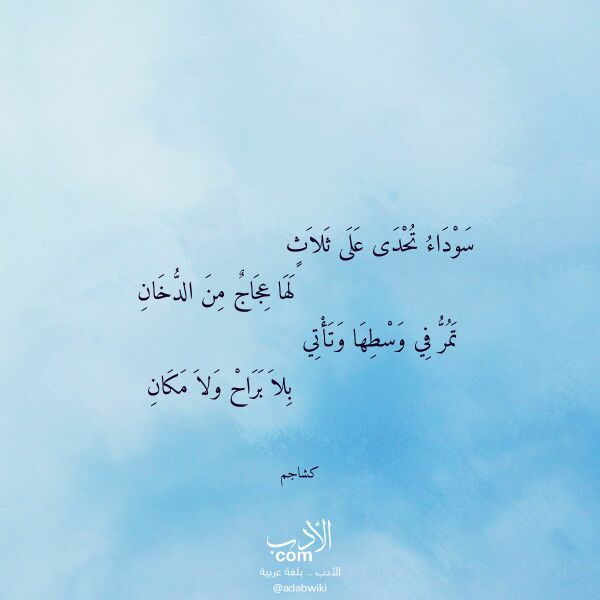 سَوْدَاءُ تُحْدَى عَلَى ثَلاَثٍ
لَهَا عِجَاجٌ مِنَ الدُّخَانِ
تَمُرُّ فِي وَسْطِهَا وَتَأْتِي
بِلاَ بَرَاحْ وَلاَ مَكَانِ
كشاجم
الأدب
com
الأدب .. بلغة عربية
@adabwiki